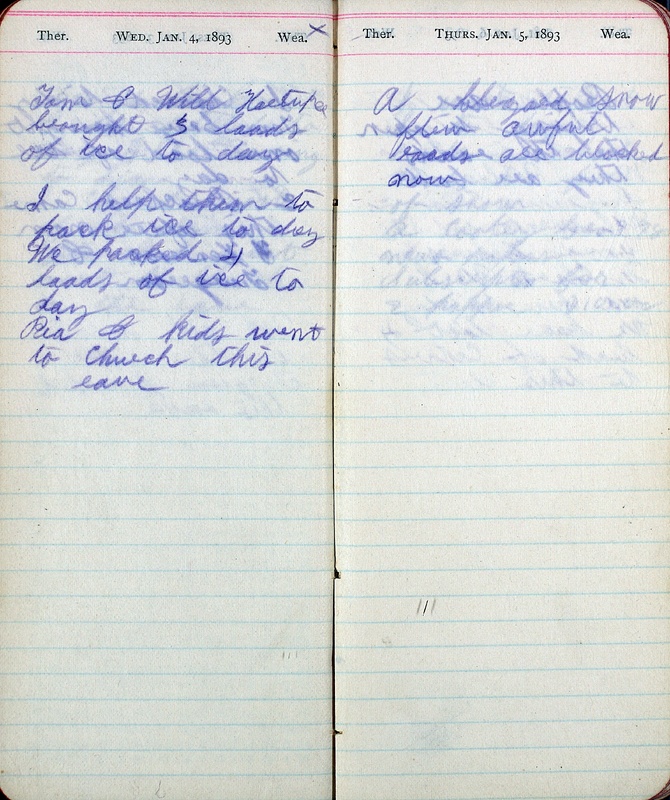 Ther. WED. JAN. 4, 1893 Wea. x
Tom & Will
brought 3 loads
of ice to day
I help them to
pack ice to day
We packed 4
loads of ice to
day
Ria & kids went
to church this
eave
Ther. THURS. JAN. 5, 1893 Wea.
A blizard snow
flew awful
roads are blocked
now
111